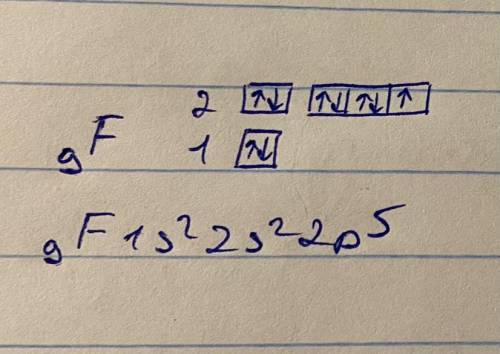 2 ↑↓ ↑↓ ↑↓ ↑
₉F 1 ↑↓
₉F 1s² 2s² 2p⁵